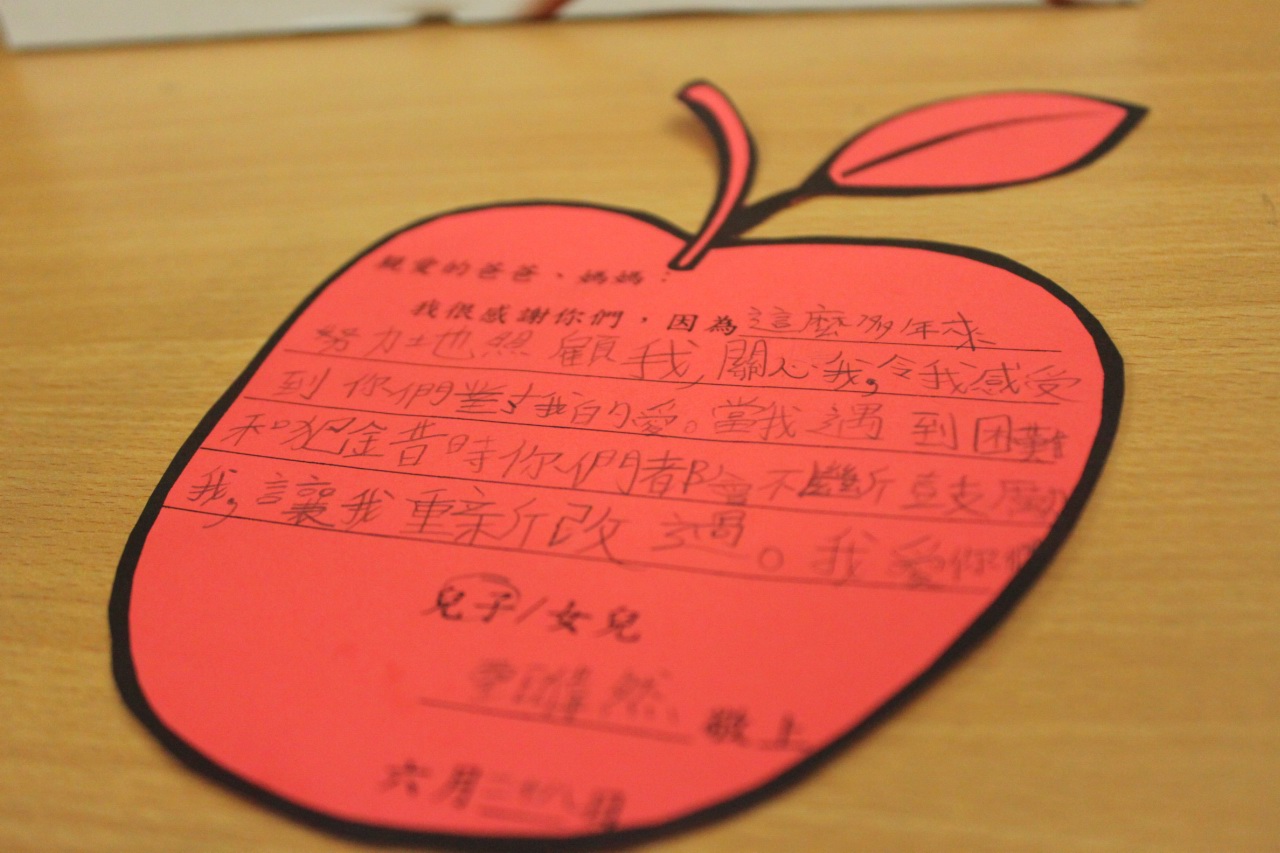 親愛的爸爸、媽媽:
我很感謝你們,因為這麼多年來
努力地照顧我,關心我,令我感受
到你們對我的愛。當我遇到困難
和犯錯時你們都會不斷鼓勵
我,讓我重新改過。我愛你們
兒子/女兒
李 然 敬上
六月二十八號